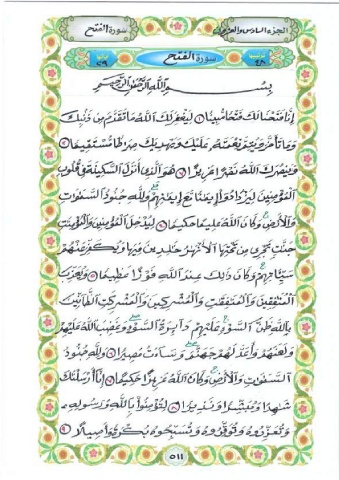 الجزء السادس والعشرون سورة الفتح
سورة الفتح ٤٨ ٢٩
بسم الله الرحمن الرحيم
إنا فتحنا لك فتحا مبينا ۝١ ليغفر لك الله ما تقدم من ذنبك
وما تأخر ويتم نعمته عليك ويهديك صراطا مستقيما ۝٢
وينصرك الله نصرا عزيزا ۝٣ هو الذي أنزل السكينة في قلوب
المؤمنين ليزدادوا إيمانا مع إيمانهم ولله جنود السموات
والأرض وكان الله عليما حكيما ۝٤ ليدخل المؤمنين والمؤمنت
جنت تجري من تحتها الأنهر خلدين فيها ويكفر عنهم
سيئاتهم وكان ذلك عند الله فوزا عظيما ۝٥ ويعذب
المنفقين والمنفقت والمشركين والمشركت الظانين
بالله ظن السوء عليهم دائرة السوء وغضب الله عليهم
ولعنهم وأعد لهم جهنم وساءت مصيرا ۝٦ ولله جنود
السموات والأرض وكان الله عزيزا حكيما ۝٧ إنا أرسلنك
شهدا ومبشرا ونذيرا ۝٨ لتؤمنوا بالله ورسوله
وتعزروه وتوقروه وتسبحوه بكرة وأصيلا ۝٩
٥١١